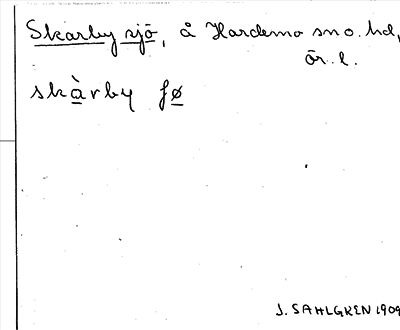 Skarby sjö, å Hardemo sn o. hd,
ör. l.
skàrby fø
J. SAHLGREN 1909